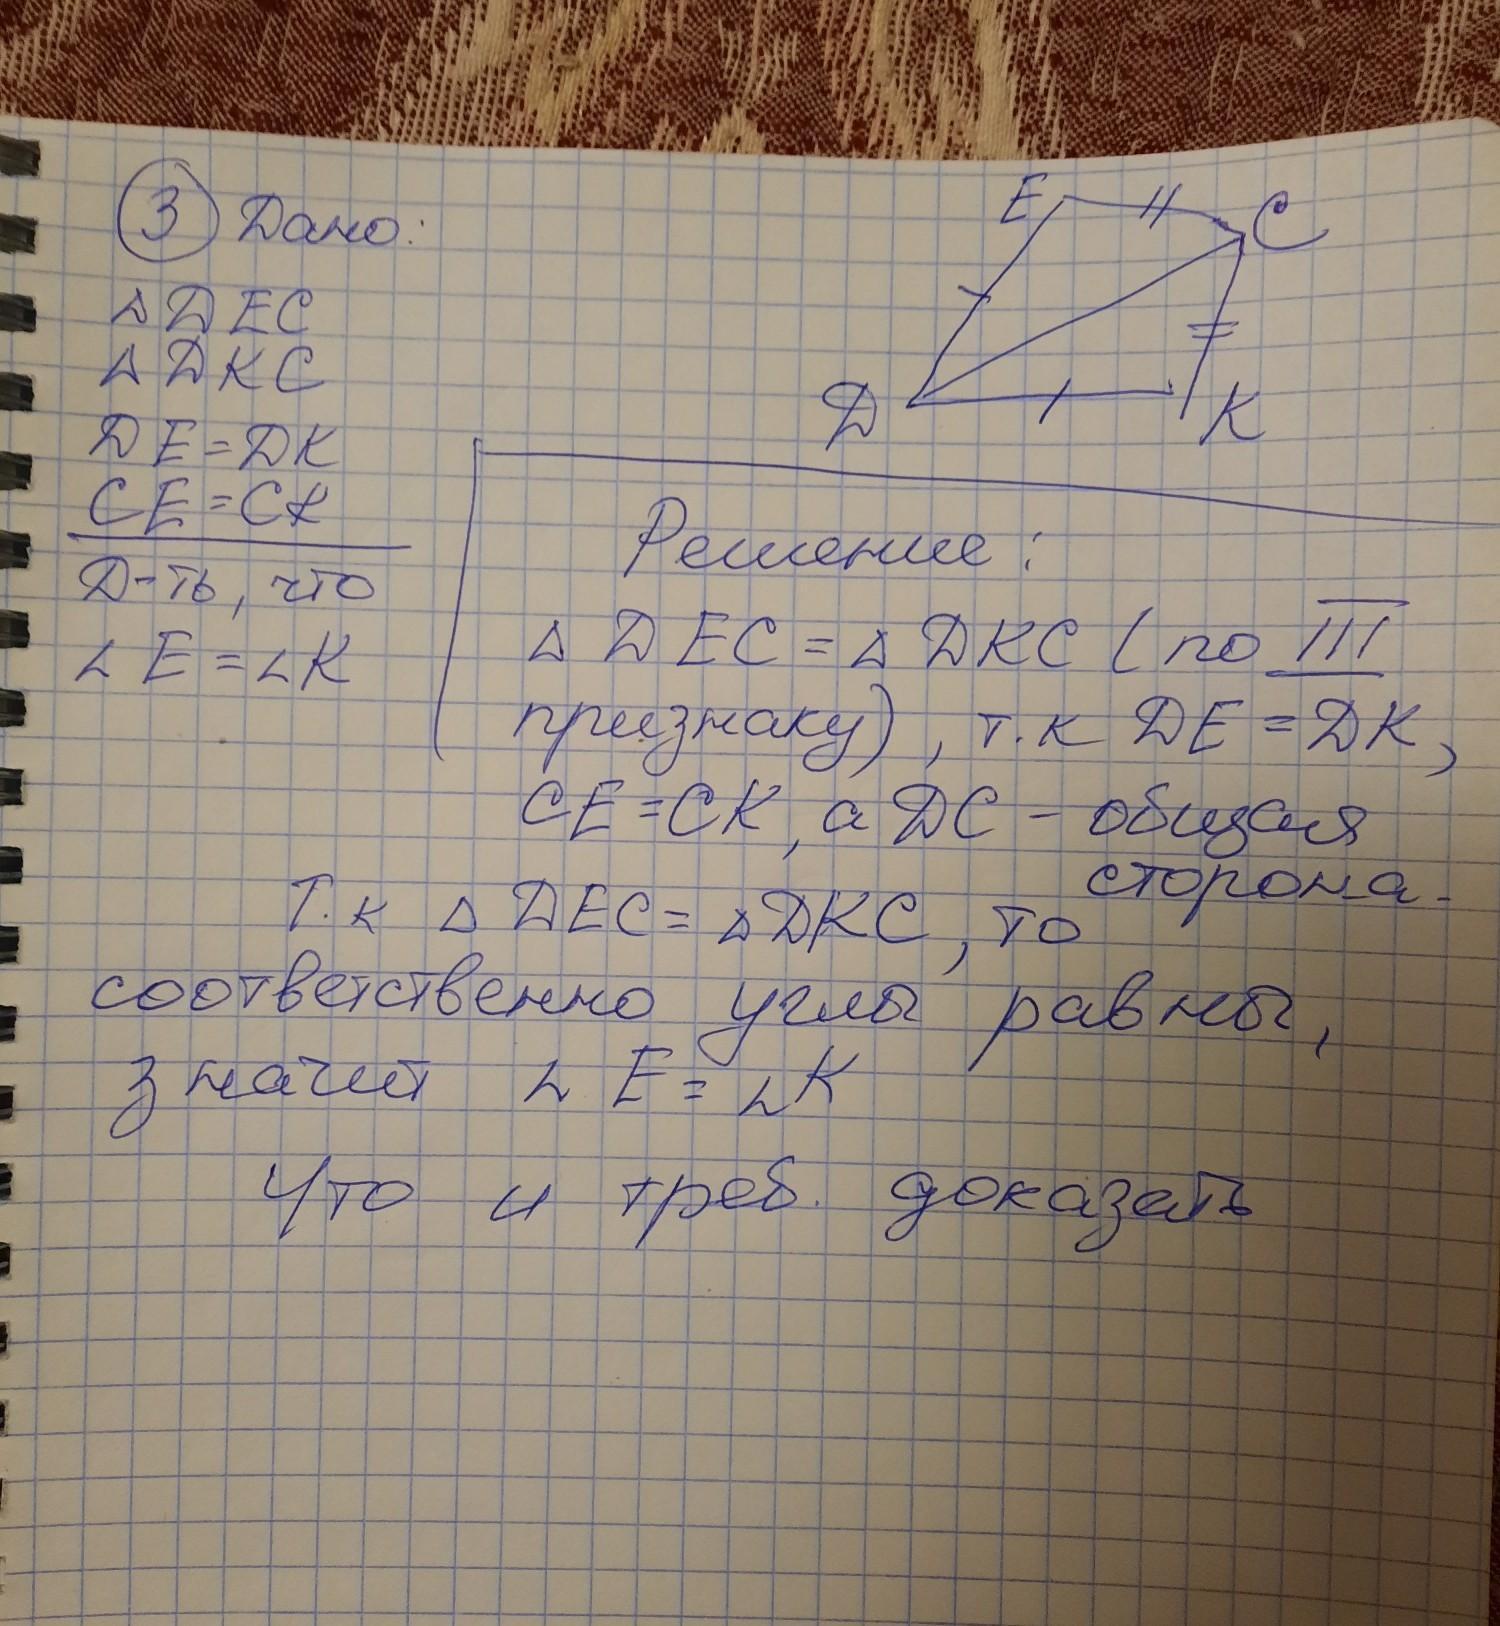 3 Дано:
△ DEC
△ DKC
DE = DK
CE = CK
Д-ть, что
∠ E = ∠K
E
C
D
K
Решение:
△ DEC = △ DKC (по III
признаку), т.к DE = DK,
CE = CK, а DC - общая
сторона.
Т.к △ DEC = △DKC, то
соответственно углы равны,
значит ∠ E = ∠K
Что и треб. доказать